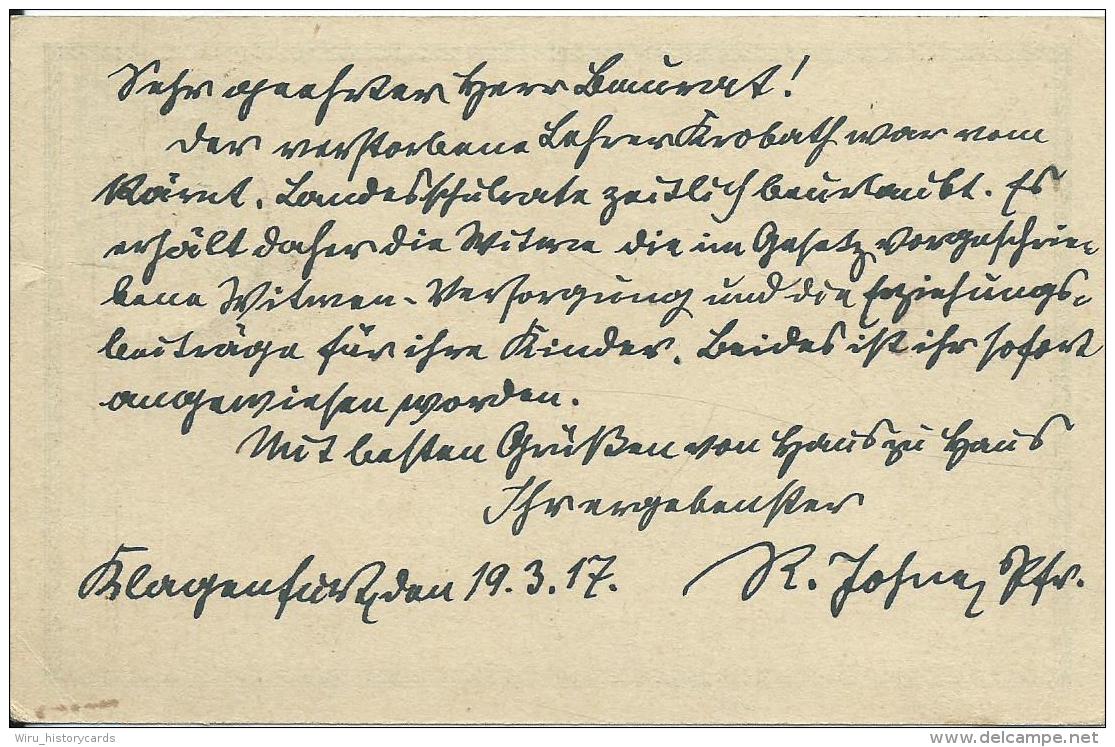 Sehr geehrter Herr Baurat!
Der verstorbene Lehrer Krobath war vom
Kärnt. Landesschulrate zeitlich beurlaubt. Es
erhält daher die Witwe die im Gesetz vorgeschrie-
bene Witwen-Versorgung und die Erziehungs-
beiträge für ihre Kinder. Beides ist ihr sofort
angewiesen worden.
Mit besten Grüßen von Haus zu Haus
Ihr ergebenster
Klagenfurt, den 19.3.17. R. Johne, Pfr.
Wiru_historycards
delcampe.net